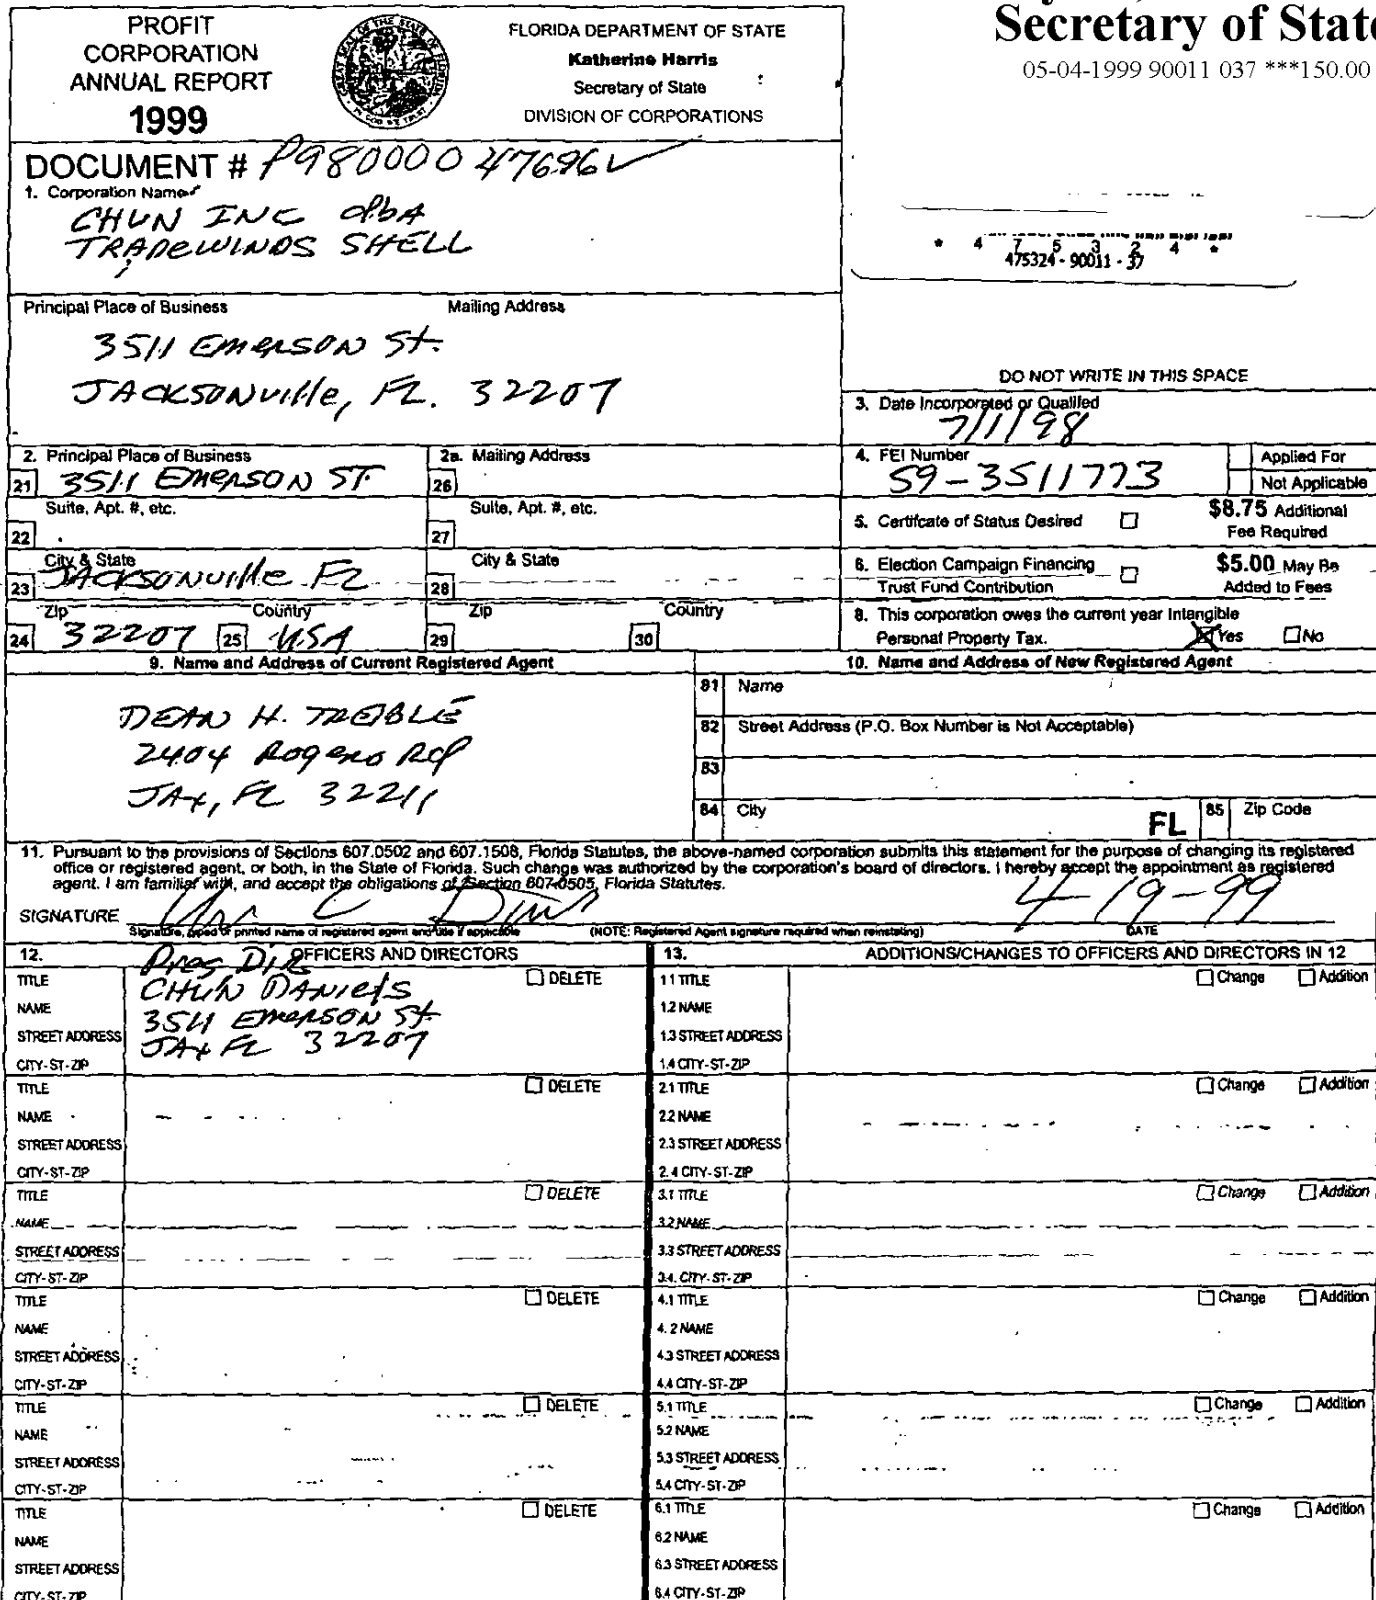 PROFIT
CORPORATION
ANNUAL REPORT
1999
FLORIDA DEPARTMENT OF STATE
Katherine Harris
Secretary of State
DIVISION OF CORPORATIONS
Secretary of State
05-04-1999 90011 037 ***150.00
DOCUMENT # P98000047696
1. Corporation Name
CHUN INC dba
TRADEWINDS SHELL
* 4 7 5 3 2 4 *
475324 - 90011 - 37
Principal Place of Business Mailing Address
3511 EMERSON St.
JACKSONville, FL. 32207
DO NOT WRITE IN THIS SPACE
3. Date Incorporated or Qualifed
7/1/98
2. Principal Place of Business
21 3511 EMERSON ST.
2a. Mailing Address
26
4. FEI Number
59-3511773
Applied For
Not Applicable
Suite, Apt. #, etc.
22
Suite, Apt. #, etc.
27
5. Certifcate of Status Desired
$8.75 Additional
Fee Required
City & State
23 JACKSONville FL
City & State
28
6. Election Campaign Financing
Trust Fund Contribution
$5.00 May Be
Added to Fees
Zip Country
24 32207 25 USA
Zip Country
29 30
8. This corporation owes the current year Intangible
Personal Property Tax. Yes No
9. Name and Address of Current Registered Agent
DEAN H. TREIBLE
2404 Rogero Rd
JAX, FL 32211
10. Name and Address of New Registered Agent
81 Name
82 Street Address (P.O. Box Number is Not Acceptable)
83
84 City FL 85 Zip Code
11. Pursuant to the provisions of Sections 607.0502 and 607.1508, Florida Statutes, the above-named corporation submits this statement for the purpose of changing its registered
office or registered agent, or both, in the State of Florida. Such change was authorized by the corporation's board of directors. I hereby accept the appointment as registered
agent. I am familiar with, and accept the obligations of, Section 607.0505, Florida Statutes.
SIGNATURE 4-19-99
Signature, typed or printed name of registered agent and title if applicable (NOTE: Registered Agent signature required when reinstating) DATE
12. OFFICERS AND DIRECTORS
13. ADDITIONS/CHANGES TO OFFICERS AND DIRECTORS IN 12
TITLE Pres Dir DELETE
NAME CHUN DANIELS
STREET ADDRESS 3511 EMERSON St
CITY-ST-ZIP JAX FL 32207
1.1 TITLE Change Addition
1.2 NAME
1.3 STREET ADDRESS
1.4 CITY-ST-ZIP
TITLE DELETE
NAME
STREET ADDRESS
CITY-ST-ZIP
2.1 TITLE Change Addition
2.2 NAME
2.3 STREET ADDRESS
2.4 CITY-ST-ZIP
TITLE DELETE
NAME
STREET ADDRESS
CITY-ST-ZIP
3.1 TITLE Change Addition
3.2 NAME
3.3 STREET ADDRESS
3.4. CITY-ST-ZIP
TITLE DELETE
NAME
STREET ADDRESS
CITY-ST-ZIP
4.1 TITLE Change Addition
4.2 NAME
4.3 STREET ADDRESS
4.4 CITY-ST-ZIP
TITLE DELETE
NAME
STREET ADDRESS
CITY-ST-ZIP
5.1 TITLE Change Addition
5.2 NAME
5.3 STREET ADDRESS
5.4 CITY-ST-ZIP
TITLE DELETE
NAME
STREET ADDRESS
CITY-ST-ZIP
6.1 TITLE Change Addition
6.2 NAME
6.3 STREET ADDRESS
6.4 CITY-ST-ZIP